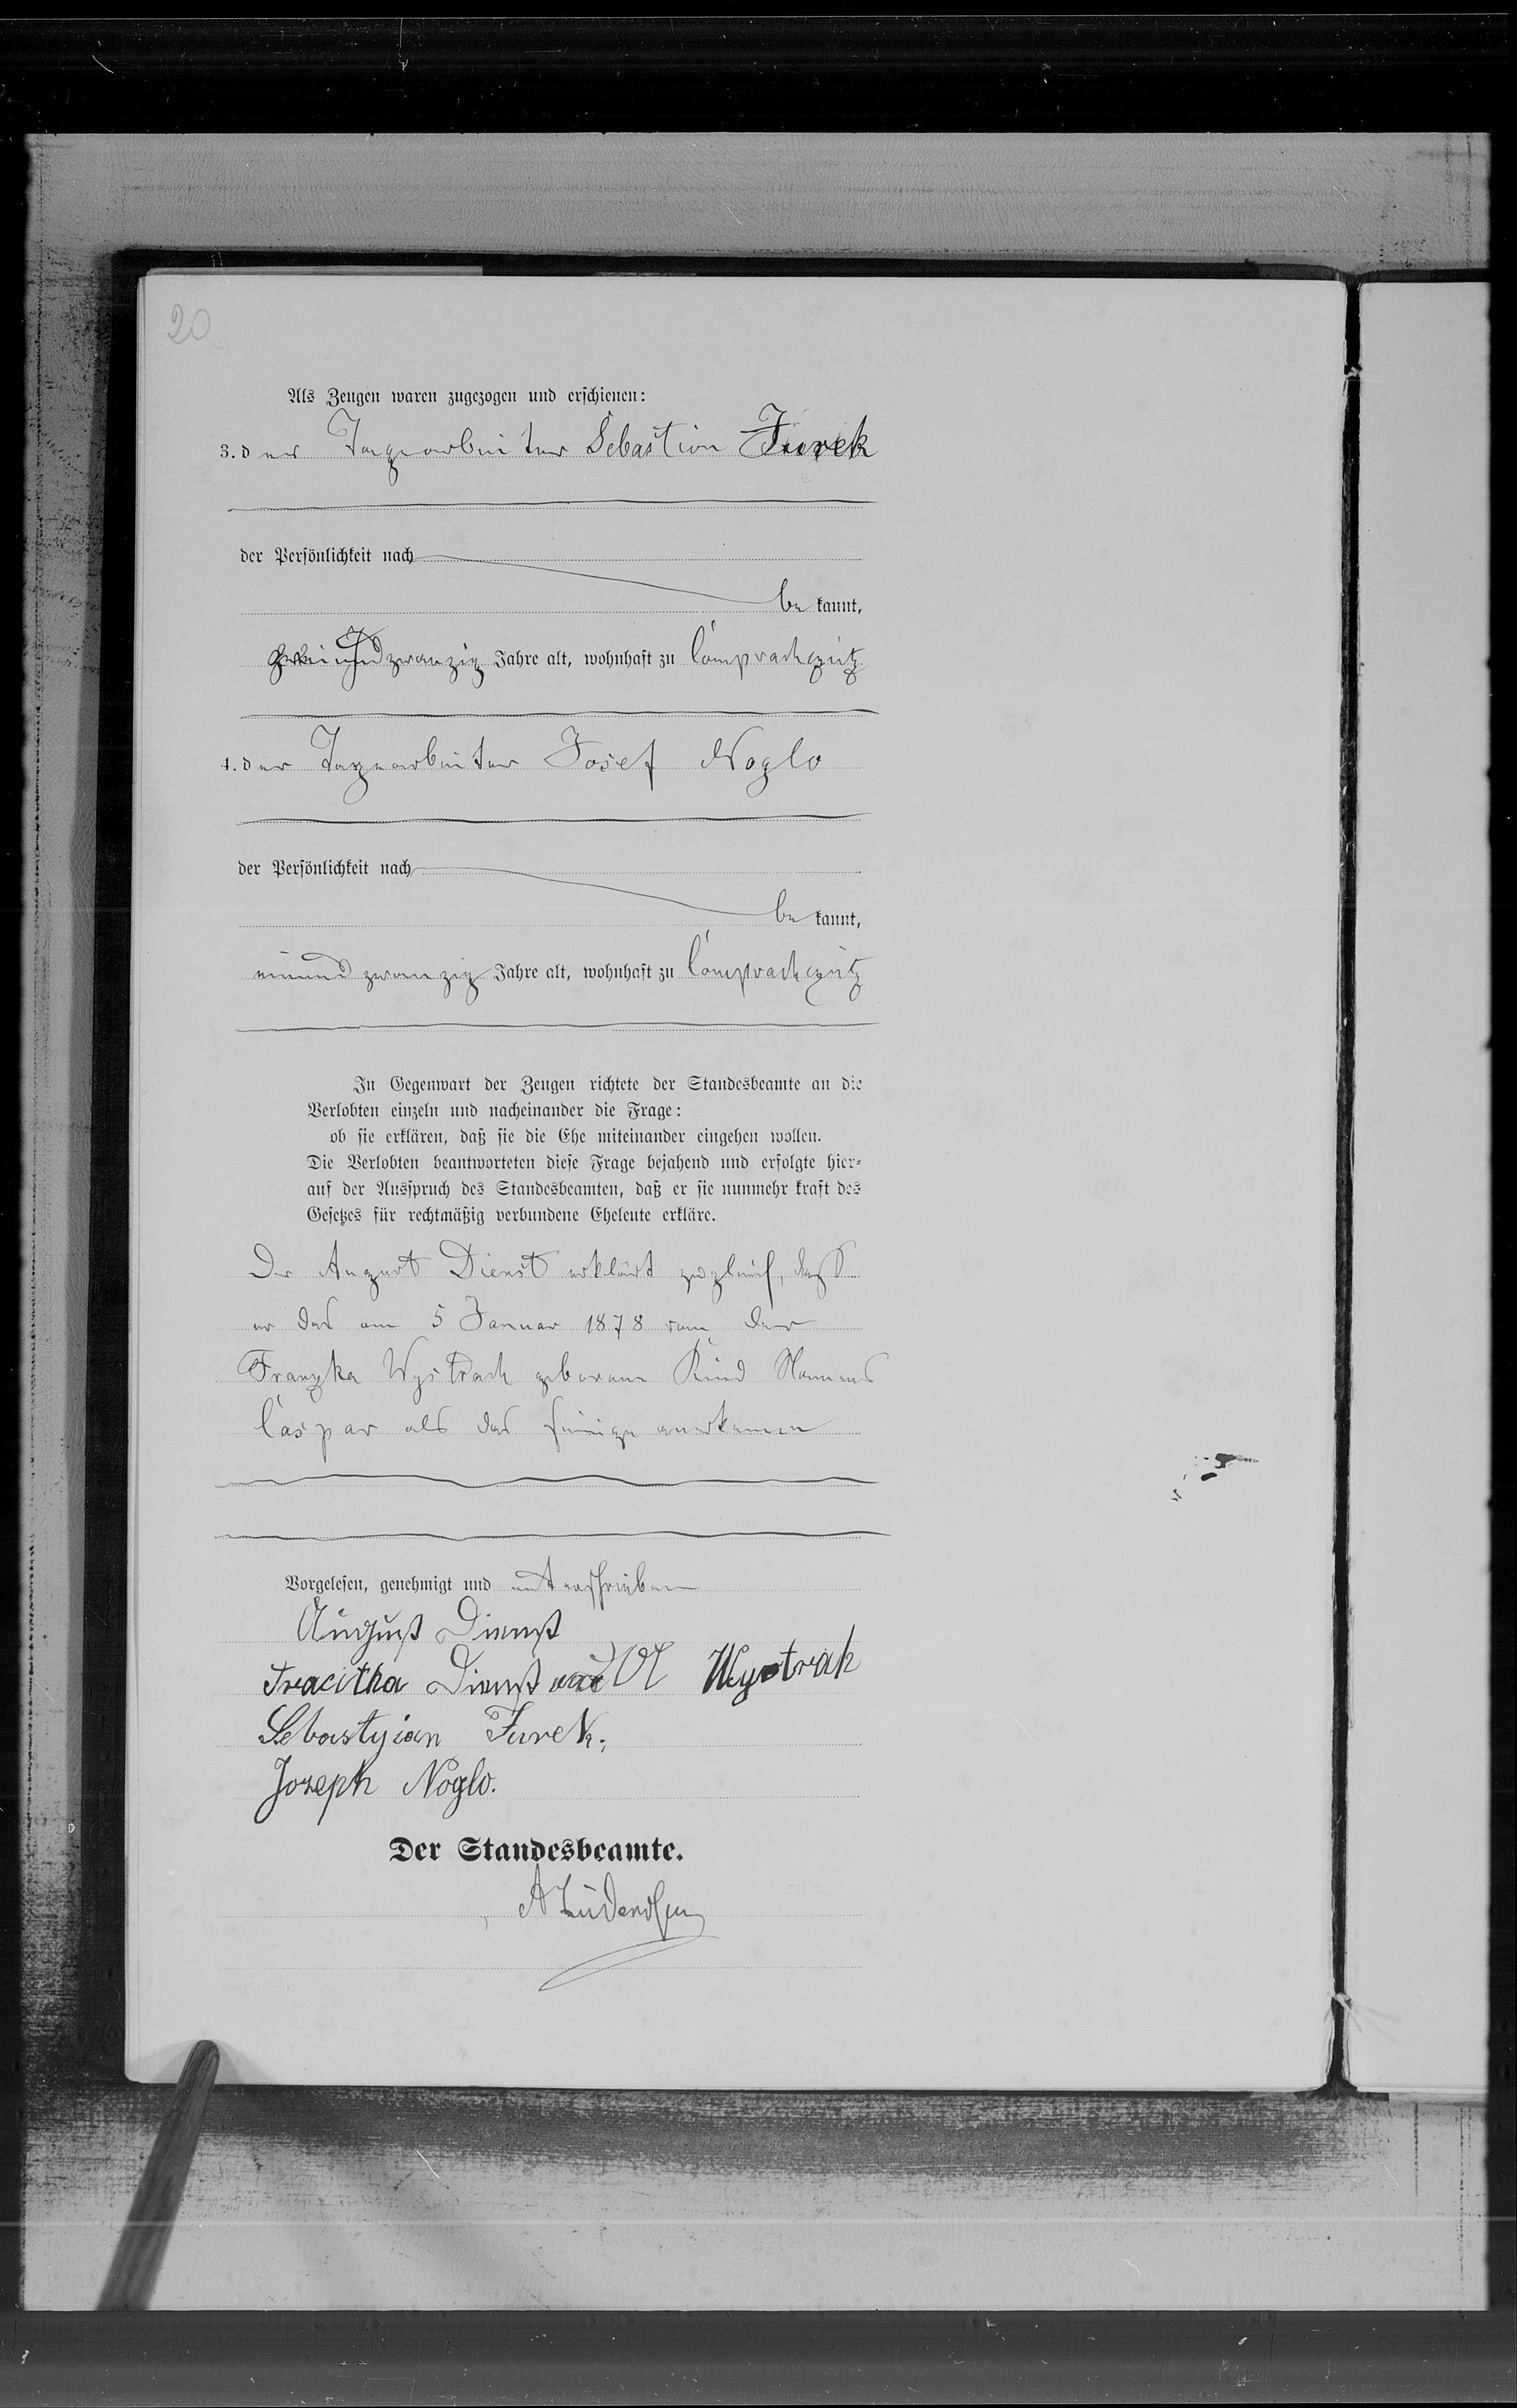 20
Als Zeugen waren zugezogen und erschienen:
3. der Tagearbeiter Sebastian Jurek
der Persönlichkeit nach
be kannt,
zwei und zwanzig Jahre alt, wohnhaft zu Comprachczütz
4. der Tagearbeiter Josef Noglo
der Persönlichkeit nach
be kannt,
einund zwanzig Jahre alt, wohnhaft zu Comprachczütz
In Gegenwart der Zeugen richtete der Standesbeamte an die
Verlobten einzeln und nacheinander die Frage:
ob sie erklären, daß sie die Ehe miteinander eingehen wollen.
Die Verlobten beantworteten diese Frage bejahend und erfolgte hier-
auf der Ausspruch des Standesbeamten, daß er sie nunmehr kraft des
Gesetzes für rechtmäßig verbundene Eheleute erkläre.
Der August Dienst erklärt zugleich, daß
er das am 5 Januar 1878 von der
Franzka Wystrach geborene Kind Namens
Caspar als das seinige anerkenne
Vorgelesen, genehmigt und unterschrieben
August Dienst
Dienst Wystrak
Sebastyian Jurek.
Joseph Noglo.
Der Standesbeamte.